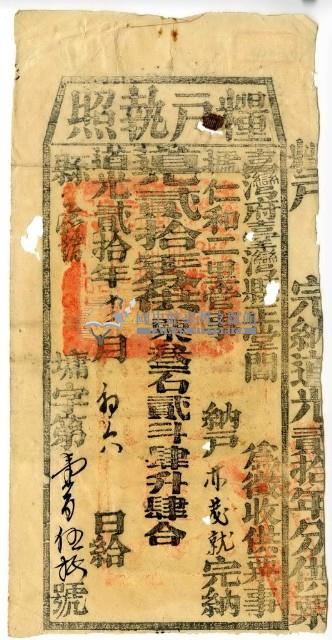 糧戶執照
糧戶 完納道光貳拾年分供粟
臺灣府臺灣縣正堂閻 為徵收供粟事
據仁和二里管事 納戶 亦茂就 完納
道光貳拾年分供粟叁石貳斗肆升肆合
道光貳拾年 月 初六 日給
縣 埔字第壹百伍拾號